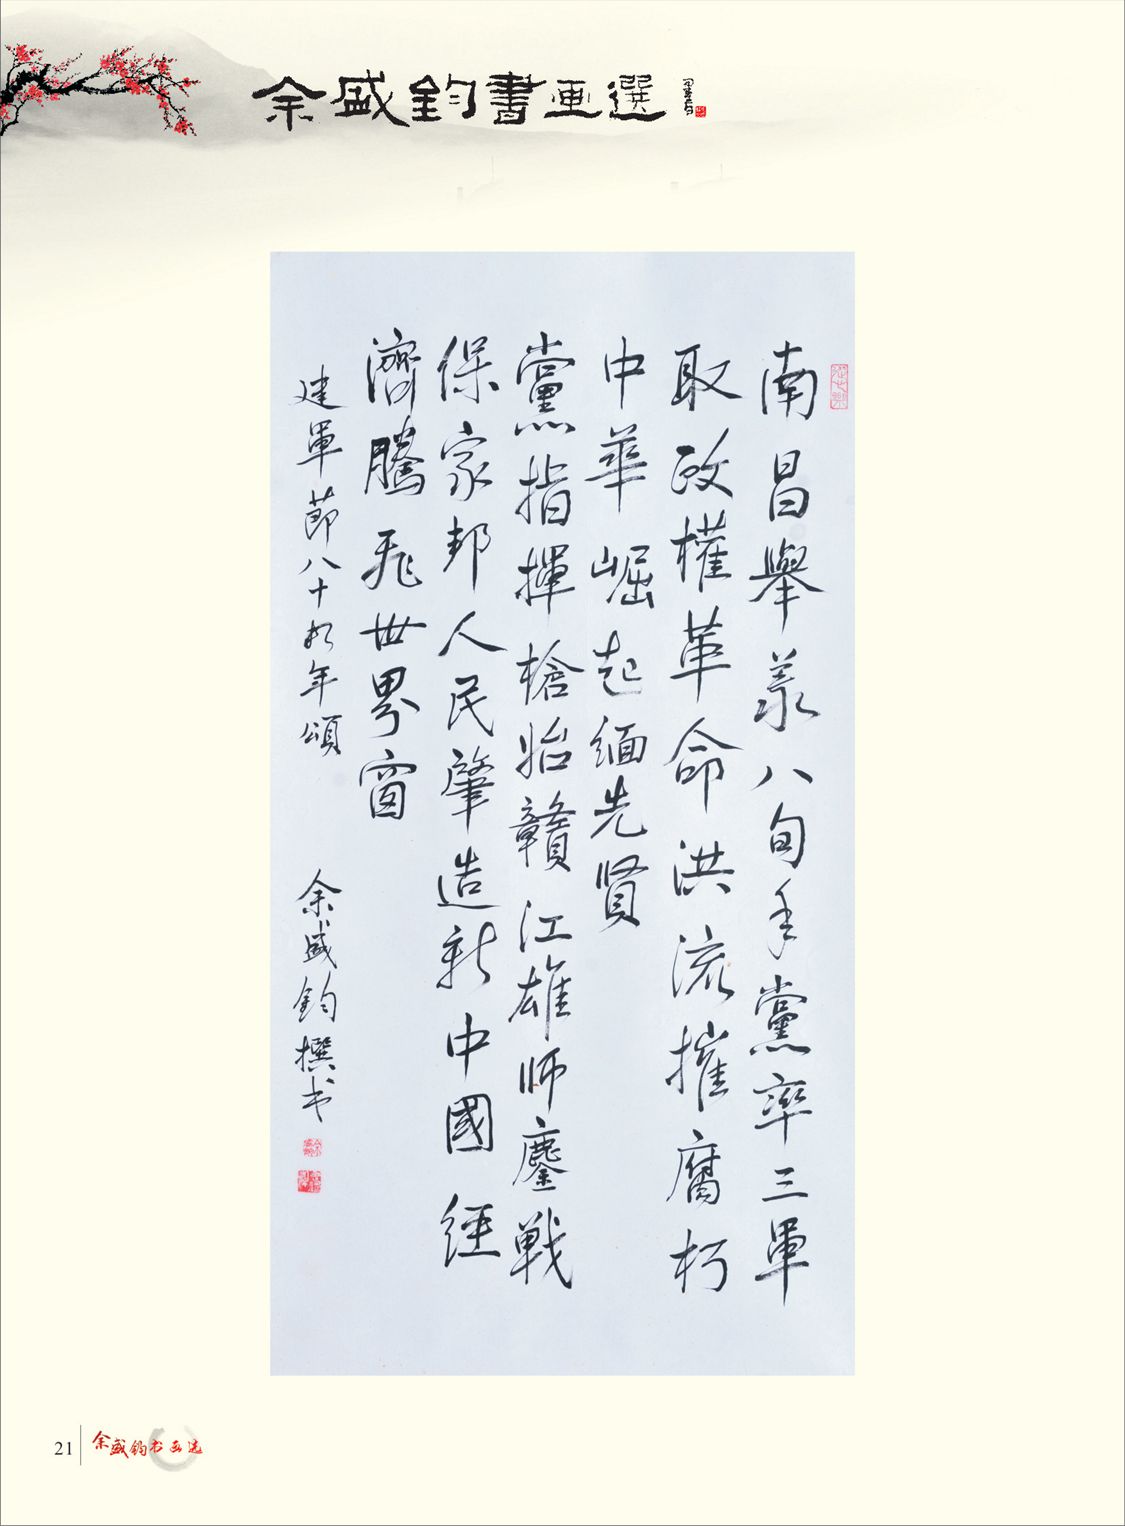 余盛鈞書画選
南昌舉義八旬年黨率三軍
取政權革命洪流摧腐朽
中華崛起缅先贤
黨指揮槍始贛江雄师鏖戰
保家邦人民肇造新中國經
濟騰飛世界窗
建軍節八十週年頌
余盛鈞撰书
21
余盛鈞书画选